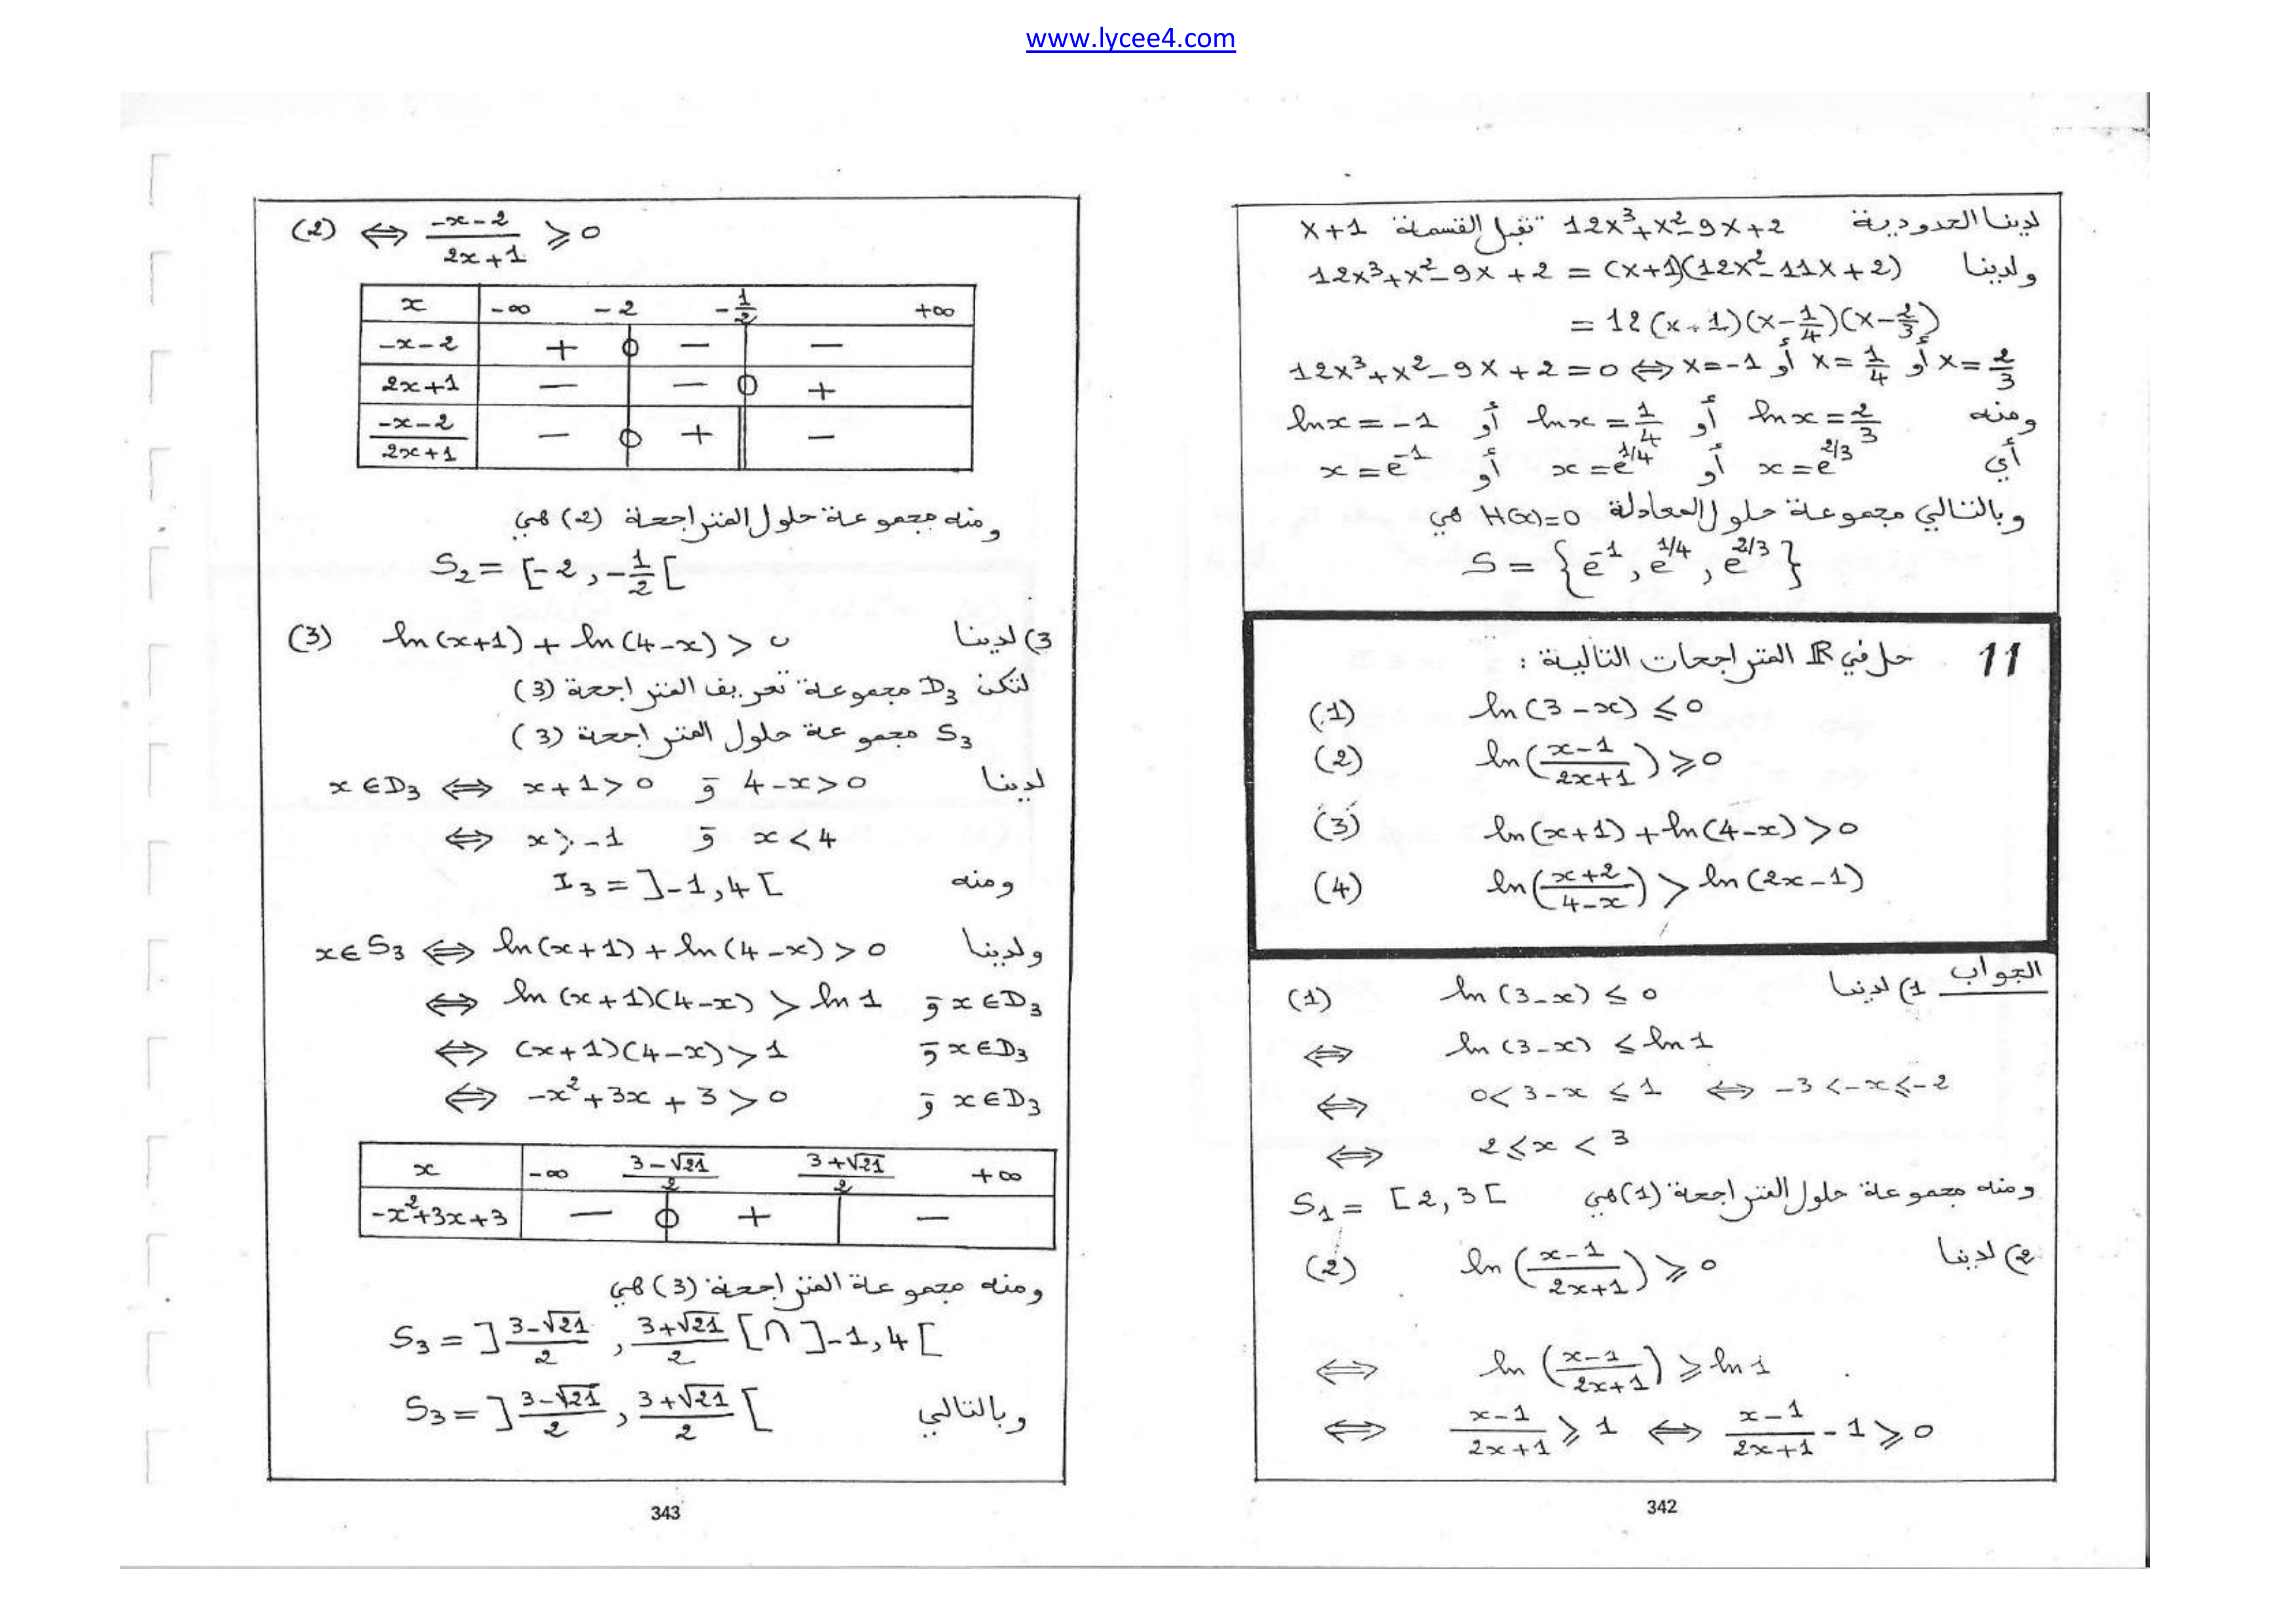 www.lycee4.com
لدينا الحدودية 12x³+x²-9x+2 تقبل القسمة x+1
ولدينا 12x³+x²-9x+2 = (x+1)(12x²-11x+2)
= 12(x+1)(x-1/4)(x-2/3)
12x³+x²-9x+2=0 ⇔ x=-1 أو x=1/4 أو x=2/3
ومنه lnx = -1 أو lnx = 1/4 أو lnx = 2/3
أي x = e⁻¹ أو x = e^{1/4} أو x = e^{2/3}
وبالتالي مجموعة حلول المعادلة H(x)=0 هي
S = {e⁻¹, e^{1/4}, e^{2/3}}
11 حل في ℝ المتراجحات التالية :
(1) ln(3-x) ≤ 0
(2) ln((x-1)/(2x+1)) ≥ 0
(3) ln(x+1)+ln(4-x) > 0
(4) ln((x+2)/(4-x)) > ln(2x-1)
الجواب 1) لدينا (1) ln(3-x) ≤ 0
⇔ ln(3-x) ≤ ln1
⇔ 0<3-x ≤ 1 ⇔ -3<-x≤-2
⇔ 2≤x<3
ومنه مجموعة حلول المتراجحة (1) هي S₁= [2,3[
2) لدينا (2) ln((x-1)/(2x+1)) ≥ 0
⇔ ln((x-1)/(2x+1)) ≥ ln1
⇔ (x-1)/(2x+1) ≥ 1 ⇔ (x-1)/(2x+1) - 1 ≥ 0
342
(2) ⇔ (-x-2)/(2x+1) ≥ 0
x -∞ -2 -1/2 +∞
-x-2 + 0 - -
2x+1 - - 0 +
(-x-2)/(2x+1) - 0 + || -
ومنه مجموعة حلول المتراجحة (2) هي
S₂= [-2,-1/2[
3) لدينا (3) ln(x+1)+ln(4-x) > 0
لتكن D₃ مجموعة تعريف المتراجحة (3)
S₃ مجموعة حلول المتراجحة (3)
لدينا x∈D₃ ⇔ x+1>0 و 4-x>0
⇔ x>-1 و x<4
ومنه I₃ = ]-1,4[
ولدينا x∈S₃ ⇔ ln(x+1)+ln(4-x)>0
⇔ ln(x+1)(4-x) > ln1 و x∈D₃
⇔ (x+1)(4-x)>1 و x∈D₃
⇔ -x²+3x+3>0 و x∈D₃
x -∞ (3-√21)/2 (3+√21)/2 +∞
-x²+3x+3 - 0 + | -
ومنه مجموعة المتراجحة (3) هي
S₃ = ](3-√21)/2 , (3+√21)/2[ ∩ ]-1,4[
وبالتالي S₃ = ](3-√21)/2 , (3+√21)/2[
343